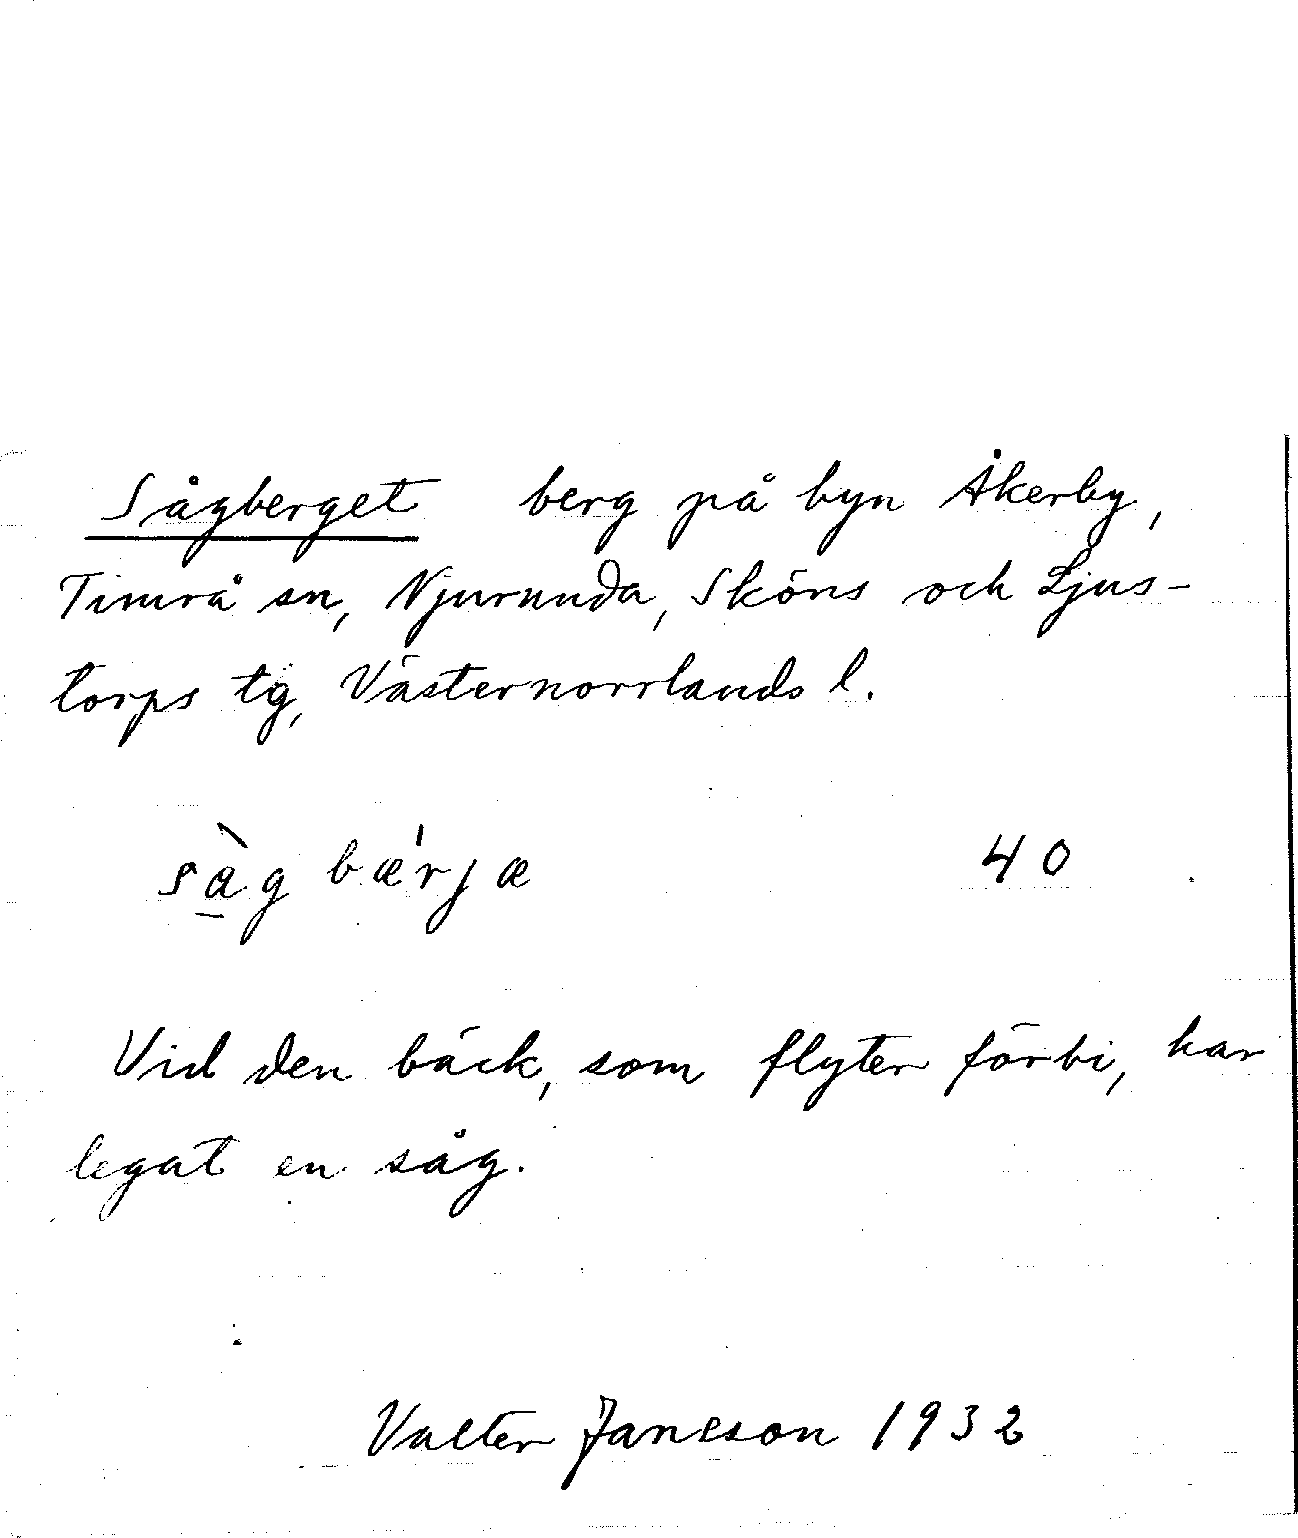 Sågberget berg på byn Åkerby,
Timrå sn, Njurunda, Sköns och Ljus-
torps tg, Västernorrlands l.
sà̲g bæ'rjæ 40
Vid den bäck, som flyter förbi, har
legat en såg.
Valter Janzson 1932